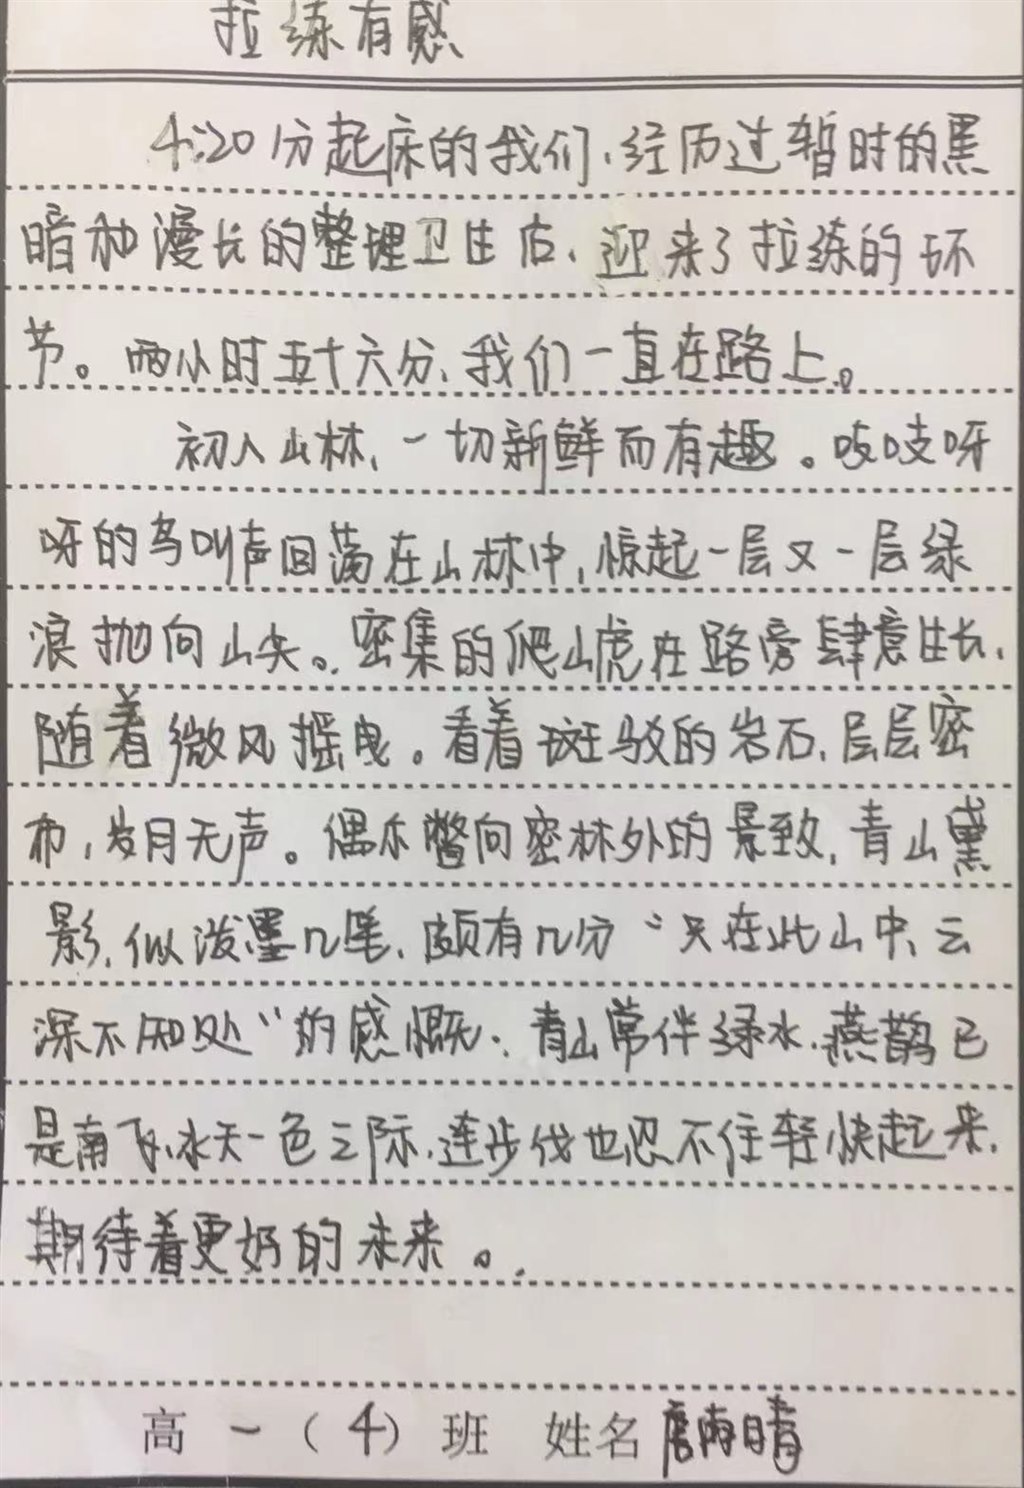 拉练有感
4:20分起床的我们,经历过暂时的黑
暗和漫长的整理卫生后,迎来了拉练的环
节。两小时五十六分,我们一直在路上。
初入山林,一切新鲜而有趣。吱吱呀
呀的鸟叫声回荡在山林中,惊起一层又一层绿
浪抛向山尖。密集的爬山虎在路旁肆意生长,
随着微风摇曳。看着斑驳的岩石,层层密
布,岁月无声。偶尔瞥向密林外的景致,青山黛
影,似泼墨几笔,颇有几分“只在此山中,云
深不知处”的感慨。青山常伴绿水,燕鹊已
是南飞,水天一色之际,连步伐也忍不住轻快起来,
期待着更好的未来。
高一(4)班 姓名 唐雨晴